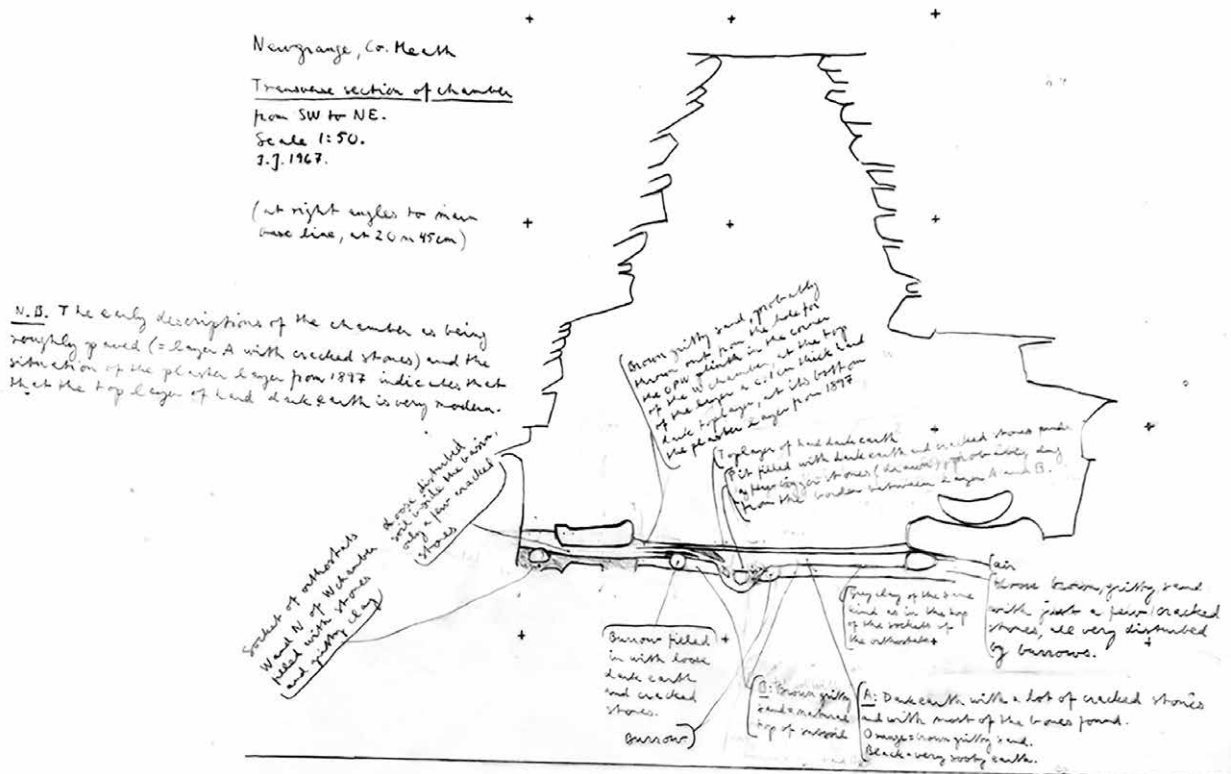 Newgrange, Co. Meath
Transverse section of chamber
from SW to NE.
Scale 1:50.
3.J.1967.
(at right angles to main
base line, at 20 m 45cm)
N.B. The early descriptions of the chamber as being
roughly paved (= layer A with cracked stones) and the
situation of the plaster layer from 1897 indicates that
that the top layer of hard dark earth is very modern.
Brown gritty sand, probably
thrown out from the hole for
the OPW plinth in the corner
of the W chamber, at the top
of the layer a c. 1 cm thick hard
dark toplayer, at its bottom
the plaster layer from 1897
Toplayer of hard dark earth
Pit filled with dark earth and cracked stones under
bigger stones probably dug
from the border between layer A and B.
Loose disturbed
soil inside the basin,
only a few cracked
stones
Socket of orthostats
W and N of W chamber
filled with stones
and gritty clay
air
Loose brown, gritty sand
with just a few cracked
stones, all very disturbed
by burrows.
Grey clay of the same
kind as in the top
of the sockets of
the orthostats
Burrow filled
in with loose
dark earth
and cracked
stones.
Burrow
B: Brown gritty
sand = natural
top of subsoil
A: Dark earth with a lot of cracked stones
and with most of the bones found.
Orange = brown gritty sand.
Black = very sooty earth.